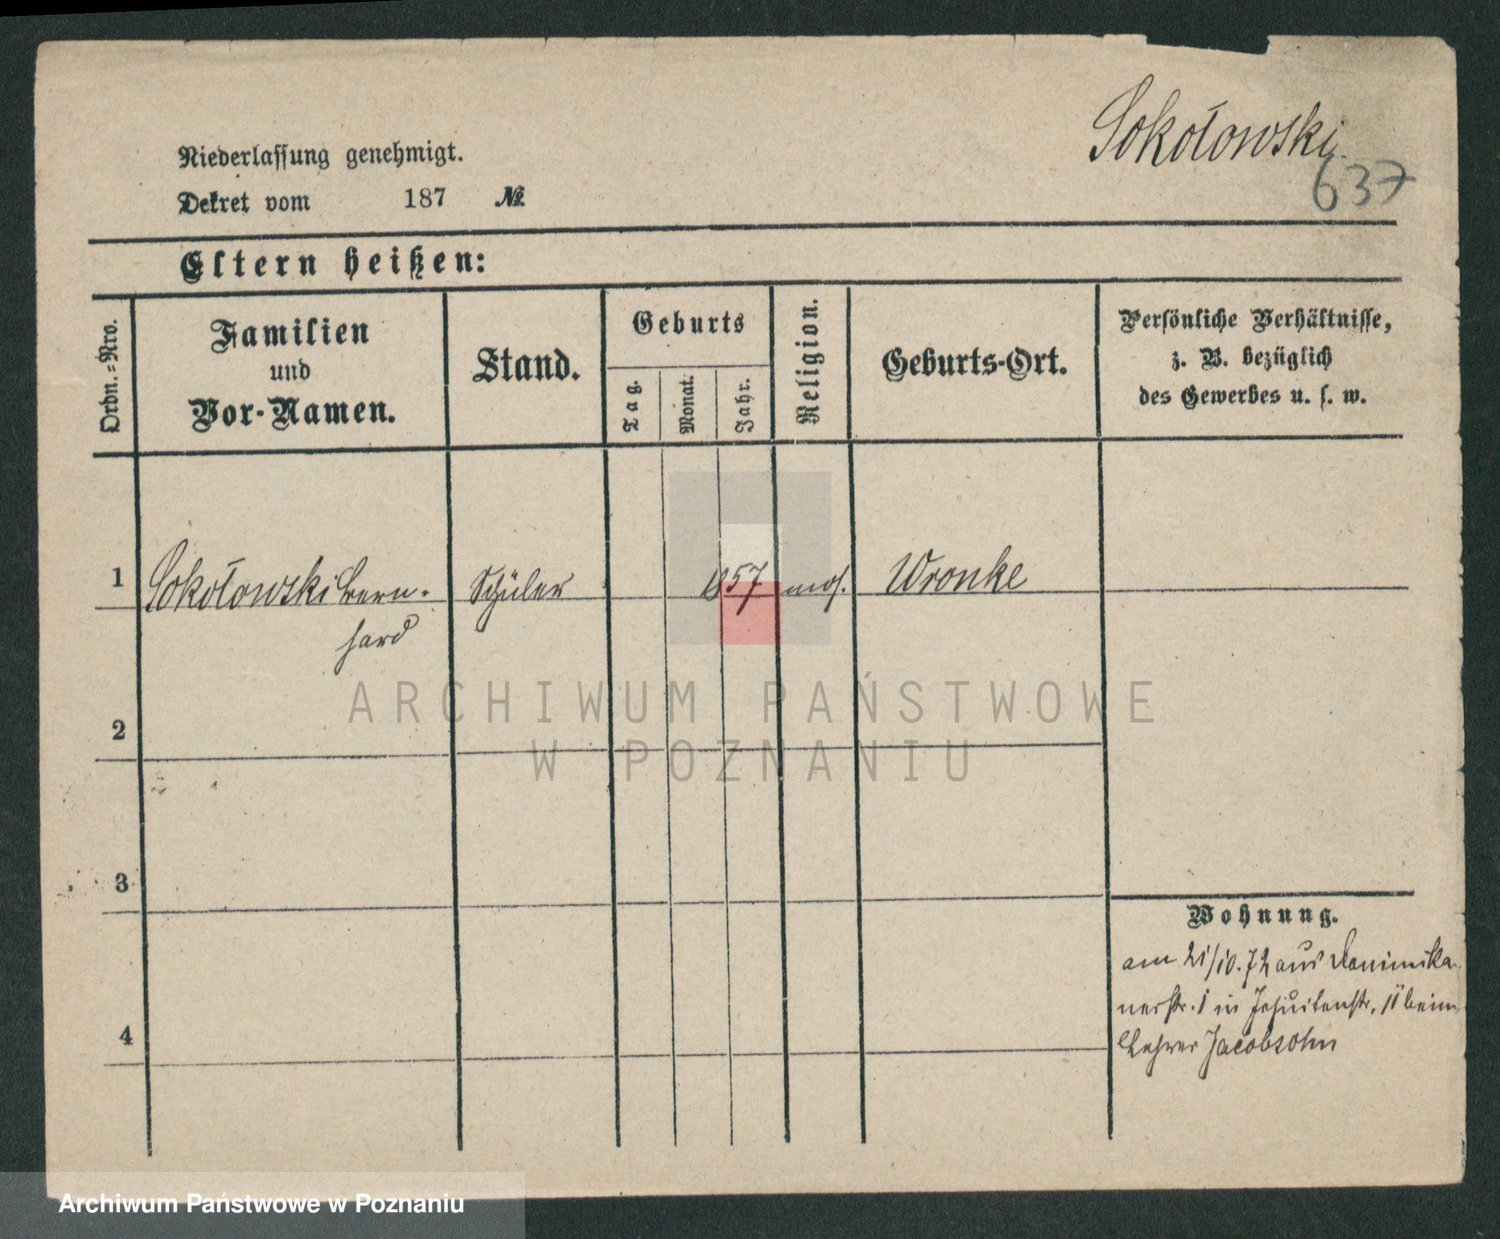 Sokołowski
637
Niederlassung genehmigt.
Dekret vom 187 №
Eltern heißen:
Ordn.-Nro.
Familien
und
Vor-Namen.
Stand.
Geburts
Tag.
Monat.
Jahr.
Religion.
Geburts-Ort.
Persönliche Verhältnisse,
z. B. bezüglich
des Gewerbes u. s. w.
1 Sokołowski Bern- Schüler 1857 mos. Wronke
hard
ARCHIWUM PAŃSTWOWE
2
W POZNANIU
3
Wohnung.
am 21/10. 72 aus Dominika-
nerstr. 1 in Jesuitenstr. 11 beim
4
Lehrer Jacobsohn
Archiwum Państwowe w Poznaniu